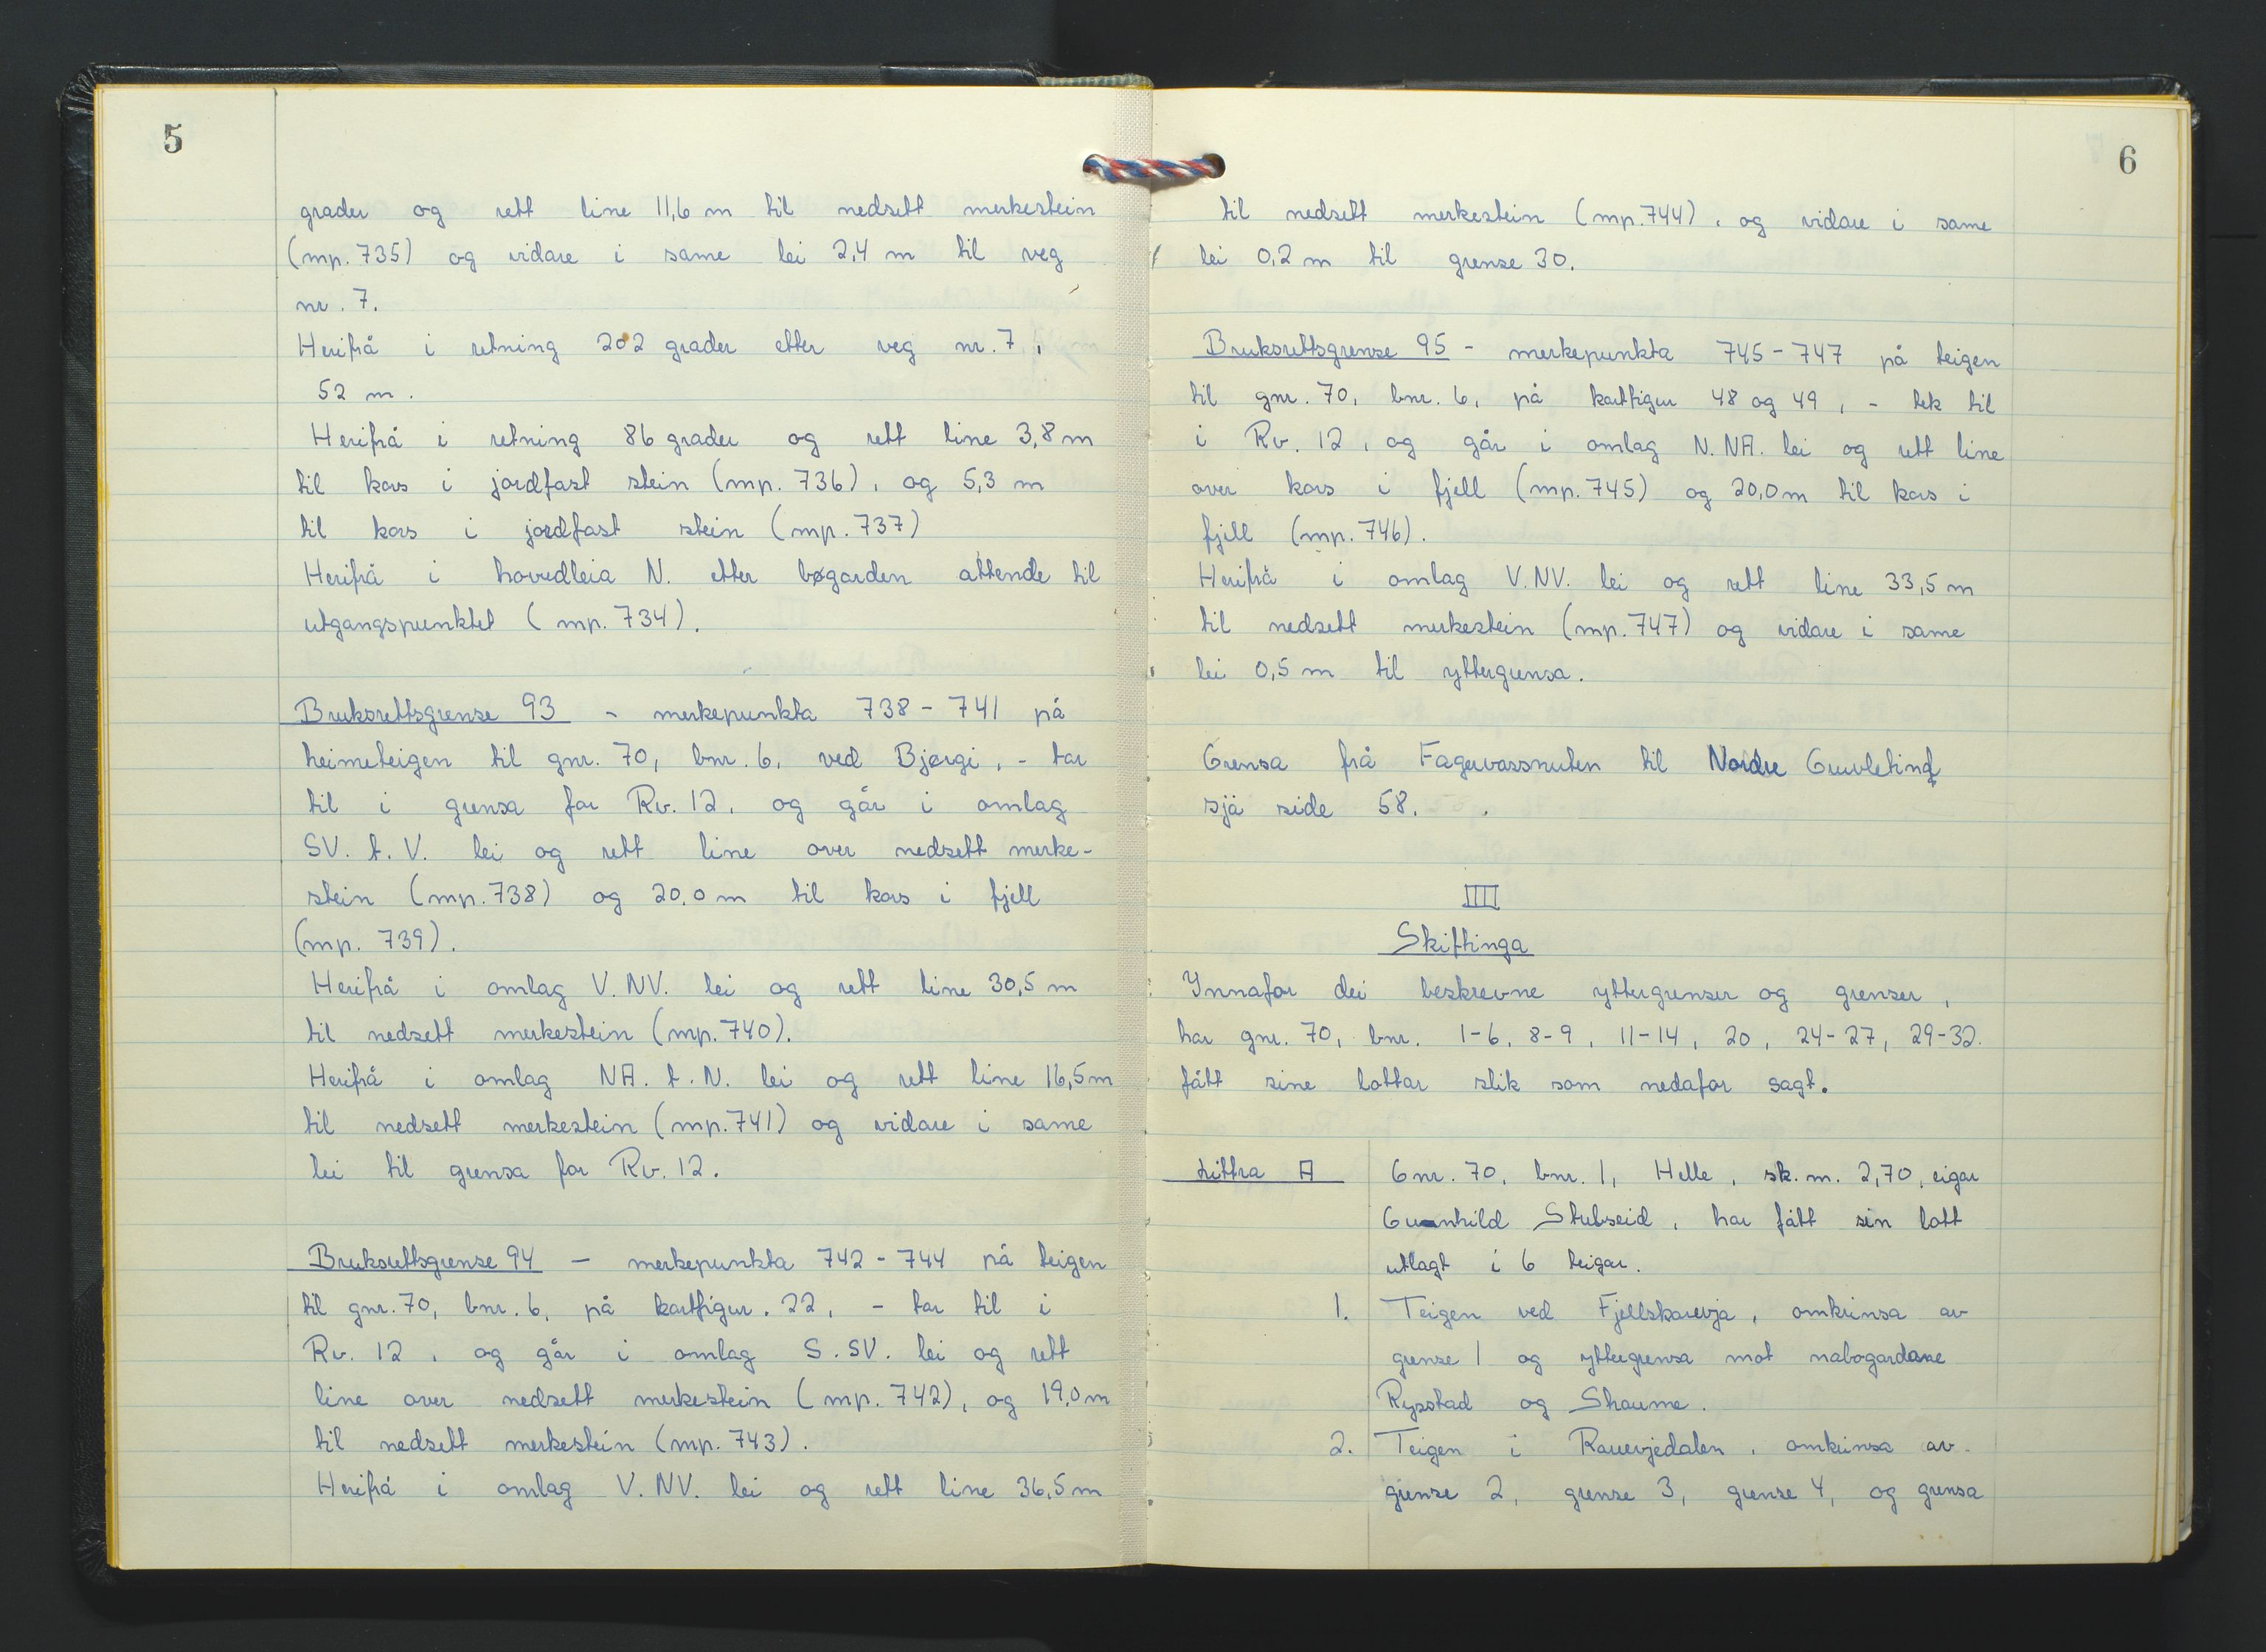 5
grader og rett line 11,6 m til nedsett merkestein
(mp. 735) og vidare i same lei 2,4 m til veg
nr. 7.
Herifrå i retning 202 grader etter veg nr. 7,
52 m.
Herifrå i retning 86 grader og rett line 3,8 m
til kors i jordfast stein (mp. 736), og 5,3 m
til kors i jordfast stein (mp. 737)
Herifrå i hovedleia N. etter bøgarden attende til
utgangspunktet (mp. 734).
Bruksrettsgrense 93 - merkepunkta 738 - 741 på
heimeteigen til gnr. 70, bnr. 6, ved Bjørgi, - tar
til i grensa for Rv. 12, og går i omlag
SV. t. V. lei og rett line over nedsett merke-
stein (mp. 738) og 20,0 m til kors i fjell
(mp. 739).
Herifrå i omlag V. NV. lei og rett line 30,5 m
til nedsett merkestein (mp. 740).
Herifrå i omlag NA. t. N. lei og rett line 16,5 m
til nedsett merkestein (mp. 741) og vidare i same
lei til grensa for Rv. 12.
Bruksrettsgrense 94 - merkepunkta 742 - 744 på teigen
til gnr. 70, bnr. 6, på kartfigur. 22, - tar til i
Rv. 12, og går i omlag S. SV. lei og rett
line over nedsett merkestein (mp. 742), og 19,0 m
til nedsett merkestein (mp. 743).
Herifrå i omlag V. NV. lei og rett line 36,5 m
6
til nedsett merkestein (mp. 744), og vidare i same
lei 0,2 m til grense 30.
Bruksrettsgrense 95 - merkepunkta 745 - 747 på teigen
til gnr. 70, bnr. 6, på kartfigur 48 og 49, - tek til
i Rv. 12, og går i omlag N. NA. lei og rett line
over kors i fjell (mp. 745) og 20,0 m til kors i
fjell (mp. 746).
Herifrå i omlag V. NV. lei og rett line 33,5 m
til nedsett merkestein (mp. 747) og vidare i same
lei 0,5 m til yttergrensa.
Grensa frå Fagervassnuten til Nordre Gruvletind
sjå side 58.
III
Skiftinga
Innafor dei beskrevne yttergrenser og grenser,
har gnr. 70, bnr. 1-6, 8-9, 11-14, 20, 24-27, 29-32.
fått sine lottar slik som nedafor sagt.
Littra A
Gnr. 70, bnr. 1, Helle, sk. m. 2,70, eigar
Gunhild Stubseid, har fått sin lott
utlagt i 6 teigar.
1. Teigen ved Fjellskarevja, omkrinsa av
grense 1 og yttergrensa mot nabogardane
Rysstad og Straume.
2. Teigen i Rauevjedalen, omkrinsa av
grense 2, grense 3, grense 4, og grensa